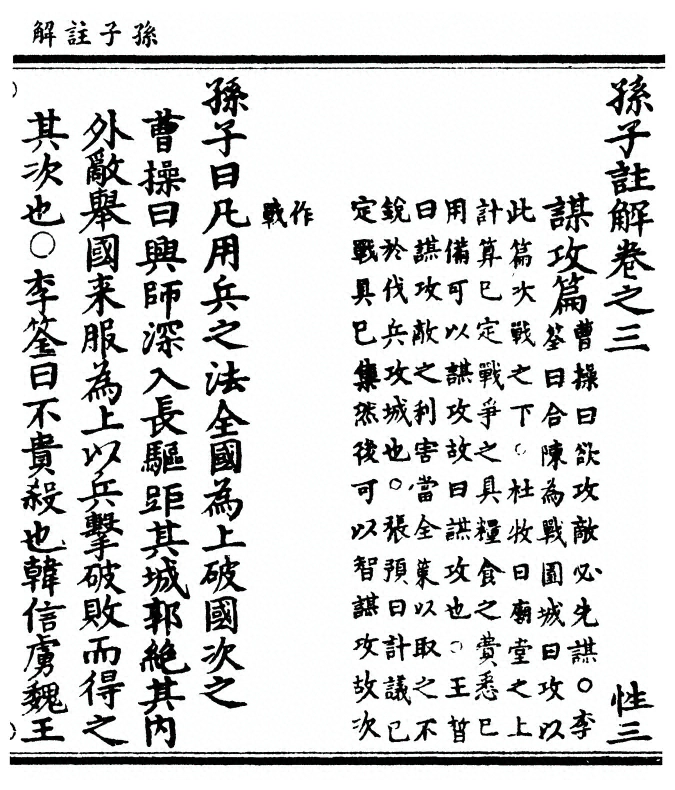 孫子註解
孫子註解卷之三 性三
謀攻篇
曹操曰欲攻敵必先謀○李
筌曰合陳為戰圍城曰攻以
此篇次戰之下○杜牧曰廟堂之上
計算已定戰爭之具糧食之費悉已
用備可以謀攻故曰謀攻也○王晳
曰謀攻敵之利害當全策以取之不
銳於伐兵攻城也○張預曰計議已
定戰具已集然後可以智謀攻故次
作
戰
孫子曰凡用兵之法全國為上破國次之
曹操曰興師深入長驅距其城郭絕其內
外敵舉國来服為上以兵擊破敗而得之
其次也○李筌曰不貴殺也韓信虜魏王